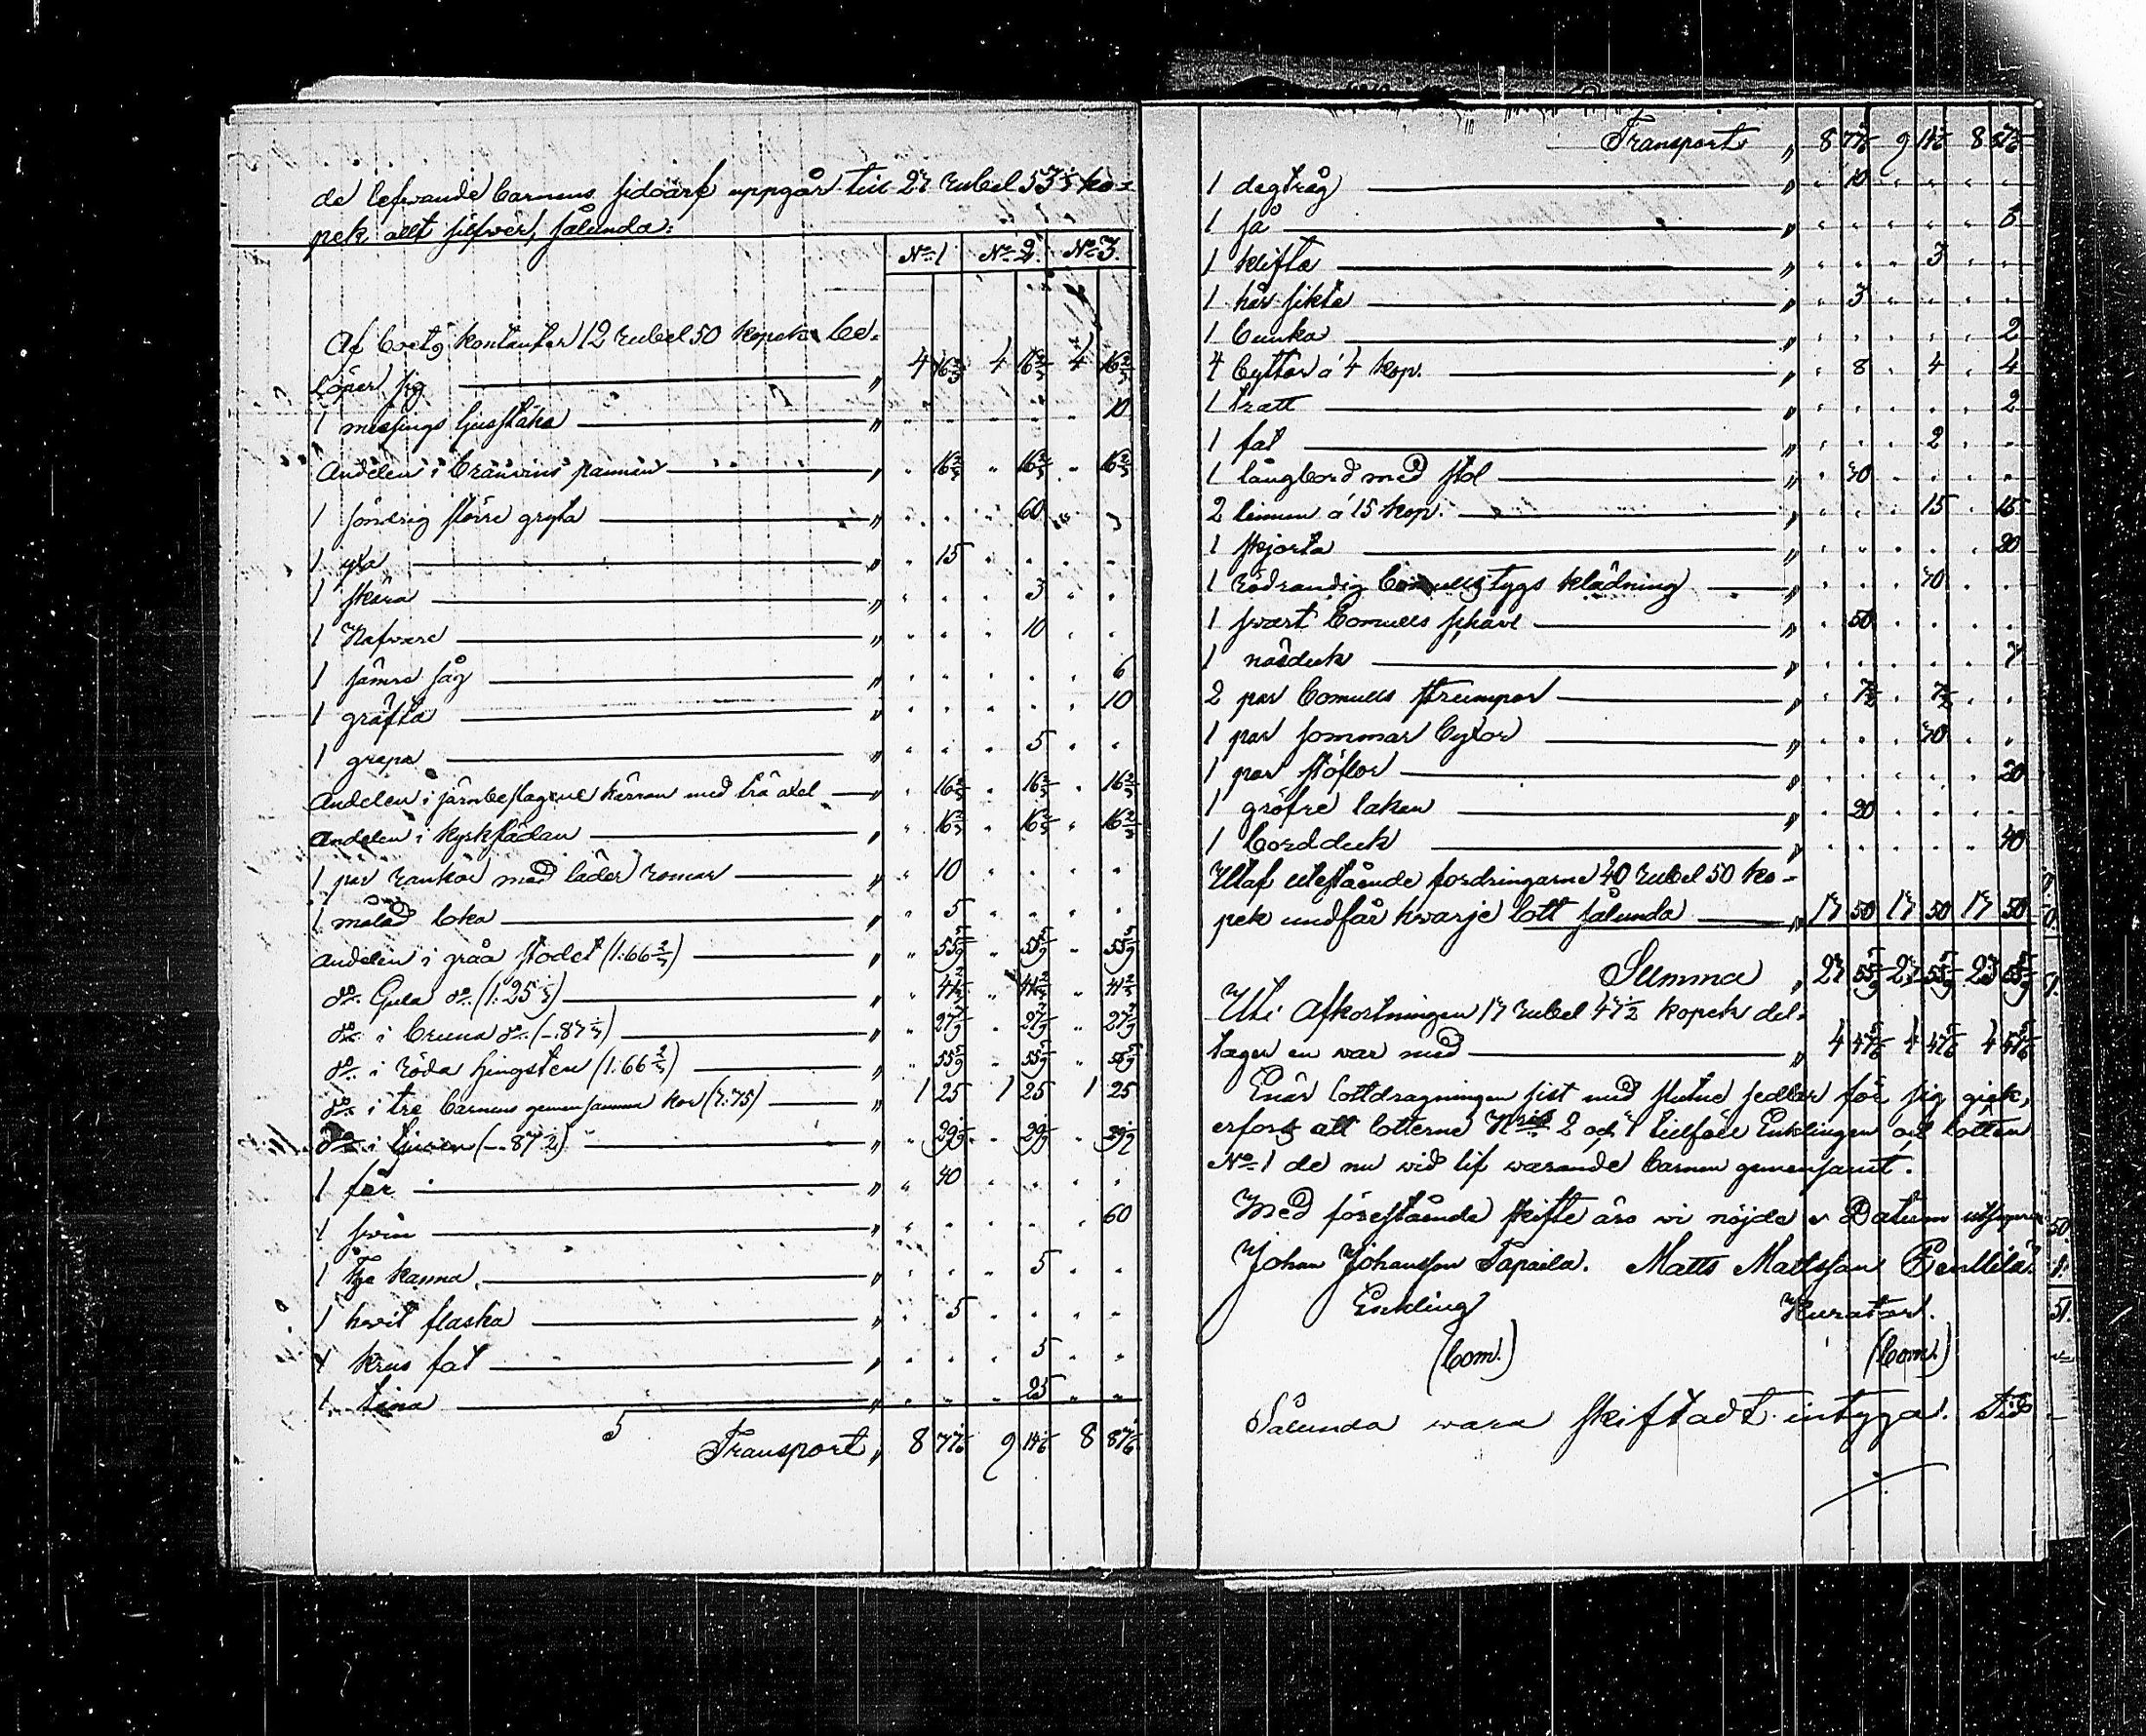 de lefwande barnens sidoarf uppgår till 27 rubel 53 1/3 ko=
pek allt silfver, sålunda:
No 1 No 2. No 3.
Af boets kontanter 12 rubel 50 kopek be=
löper sig " 4 16 2/3 4 16 2/3 4 16 2/3
1 messings ljusstaka " " " " " " 10
Andelen i bränvins pannan " " 16 2/3 " 16 2/3 " 16 2/3
1 söndrig större gryta " " " " 60
1 yxa " " 15 " " " "
1 skära " " " " 3 " "
1 Nafvare " " " " 10 " "
1 sämre såg " " " " " " 6
1 gräfta " " " " " " 10
1 grepa " " " " 5 " "
Andelen i järnbeslagene kärran med trä axel " 16 2/3 " 16 2/3 " 16 2/3
Andelen i kyrksládan " " 16 2/3 " 16 2/3 " 16 2/3
1 par rankor med läder romar " " 10 " " " "
1 målad loka " " 5 " " " "
Andelen i gråa stodet (1:66 2/3) " " 55 5/9 " 55 5/9 " 55 5/9
do Gula do (1:25 ) " " 41 2/3 " 41 2/3 " 41 2/3
do i bruna do (-.87 ) " " 27 7/9 " 27 7/9 " 27 7/9
do i röda hingsten (1:66 2/3) " " 55 5/9 " 55 5/9 " 55 5/9
do i tre barnens gemensamma kor (3:75) " 1 25 1 25 1 25
do i (-.87 1/2) " "
1 får " " 40 " " " "
1 swin " " " " " " 60
1 kanna " " " " 5 " "
1 hwit flaska " " 5 " " " "
1 krus fat " " " " 5 " "
1 tina " " " " 25 " "
5
Transport " 8 77 1/6 9 14 1/6 8 87 1/6
Transport " 8 77 1/6 9 14 1/6 8 87 1/6
1 degtråg " " 10 " " " "
1 så " " " " " " 5
1 klifta " " " " 3 " "
1 hår sikta " " 3 " " " "
1 bunka " " " " " " 2
4 byttor á 4 kop. " " 8 " 4 " 4
1 tratt " " " " " " 2
1 fat " " " " 2 " "
1 långbord med stol " " 70 " " " "
2 linnen á 15 kop. " " " " 15 " 15
1 skjorta " " " " " " 20
1 rödrandig bomulls tygs klädning " " " " 70 " "
1 swart bomulls shavl " " 50 " " " "
1 näsduk " " " " " " 7
2 par bomulls strumpor " " 7 1/2 " 7 1/2 " "
1 par sommar byxor " " " " 70 " "
1 par stöflor " " " " " " 20
1 gröfre laken " " 20 " " " "
1 bordduk " " " " " " 40
Utaf utestående fordringarne 40 rubel 50 ko=
pek undfår hwarje lott sålunda " 17 50 17 50 17 50
Summa " 27 55 5/9 27 55 5/9 27 55 5/9
Uti Afkortningen 17 rubel 47 1/2 kopek del=
tager en war med " 4 47 4 47 4 47
Enär lottdragningen sist med slutne sedlar för sig gick,
erfors att lotterne Nris 2 och tillföll Enklingen och lotten
No 1 de nu wid lif warande barnen gemensamt.
Med förestående skifte äro vi nöjde Datum utsupra
Johan Johansson Tapaila. Matts Mattsson Penttilä
Enkling Kurator.
(bom.) (bom.)
Sålunda wara skiftadt intyga. Tid